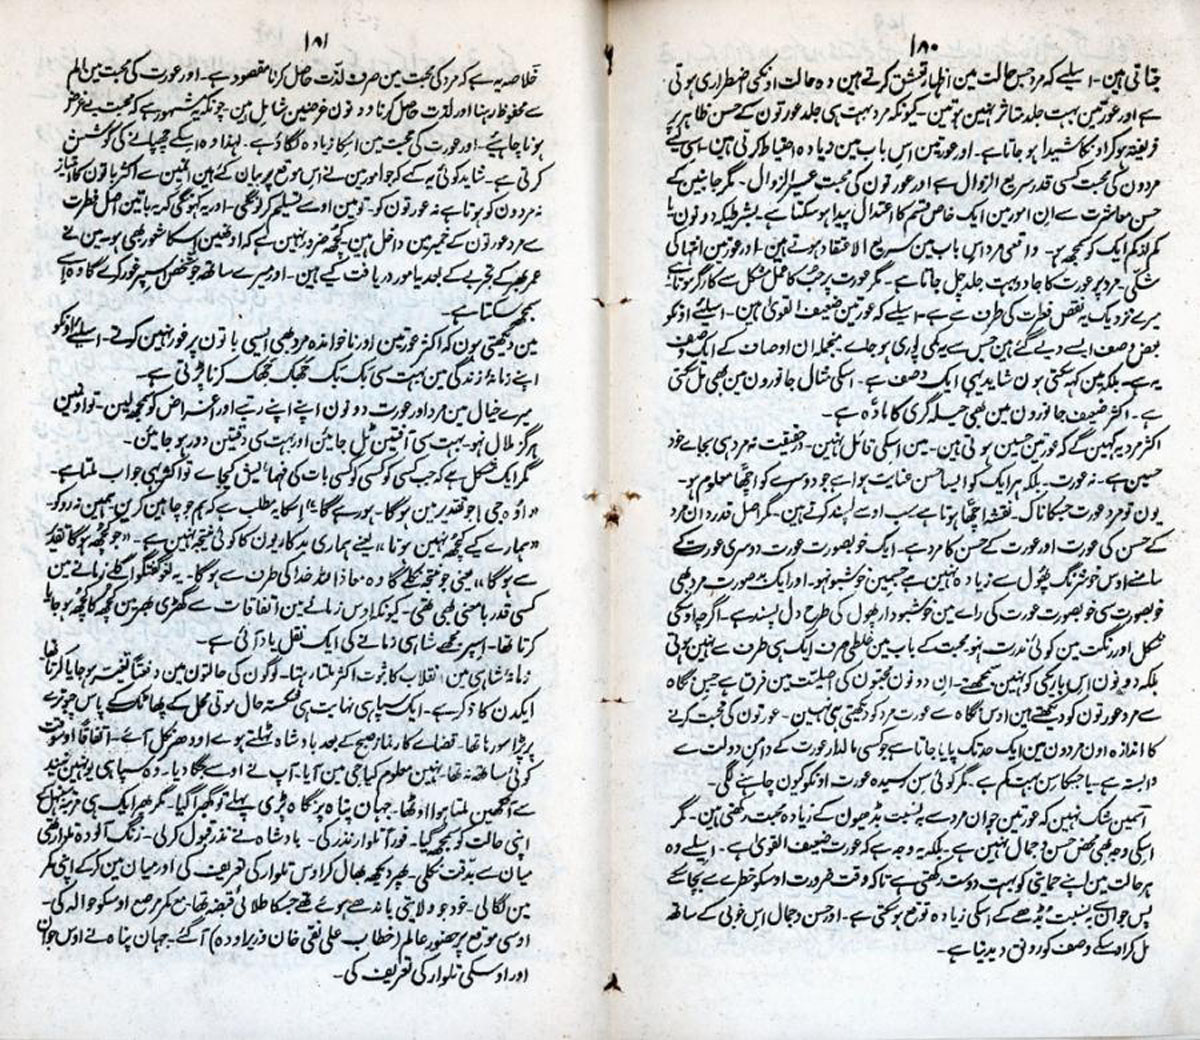 ۱۸۰
جتاتی ہین۔ اسلیے کہ مرد جس حالت مین اظہار تعشق کرتے ہین وہ حالت اونکی اضطراری ہوتی
ہے اور عورتین بہت جلد متاثر نہین ہوتین۔ کیونکہ مرد بہت ہی جلد عورتون کے حسن ظاہر پر
فریفتہ ہو کر اونکا شیدا ہو جاتا ہے۔ اور عورتین اس باب مین زیادہ احتیاط کرتی ہین۔ اسی لیے
مردون کی محبت کسی قدر سریع الزوال ہے اور عورتون کی محبت عسیر الزوال۔ مگر جانبین کے
حسن معاشرت سے ان امور مین ایک خاص قسم کا اعتدال پیدا ہو سکتا ہے۔ بشرطیکہ دونون یا
کم از کم ایک کو سمجھ ہو۔ واقعی مرد اس باب مین سریع الاعتقاد ہوتے ہین۔ اور عورتین انتہا کی
شکی۔ مرد پر عورت کا جادو بہت جلد چل جاتا ہے۔ مگر عورت پر حُب کا عمل مشکل سے کارگر ہوتا ہے
میرے نزدیک یہ نقص فطرت کی طرف سے ہے۔ اسلیے کہ عورتین ضعیف القویٰ ہین۔ اسلیئے اونکو
بعض وصف ایسے دیے گئے ہین جس سے یہ کمی پوری ہو جاے۔ منجملہ ان اوصاف کے ایک وصف
یہ ہے۔ بلکہ مین کہہ سکتی ہون شاید یہی ایک وصف ہے۔ اسکی مثال جانورون مین بھی مل سکتی
ہے۔ اکثر ضعیف جانورون مین بھی حیلہ گری کا مادّہ ہے۔
اکثر مرد یہ کہین گے کہ عورتین حسین ہوتی ہین۔ مین اسکی قائل نہین۔ درحقیقت نہ مرد ہی بجاے خود
حسین ہے۔ نہ عورت۔ بلکہ ہر ایک کو ایسا حسن عنایت ہوا ہے جو دوسرے کو اچھا معلوم ہو۔
یون تو مرد عورت جسکا ناک۔ نقشہ اچھا ہوتا ہے سب اوسے پسند کرتے ہین۔ مگر اصل قدردان مرد
کے حسن کی عورت اور عورت کے حسن کا مرد ہے۔ ایک خوبصورت عورت دوسری عورت کے
سامنے اوس خوشرنگ پھول سے زیادہ نہین ہے جسمین خوشبو نہو۔ اور ایک بد صورت مرد بھی
خوبصورت سی خوبصورت عورت کی راے مین خوشبودار پھول کی طرح دل پسند ہے۔ اگرچہ اوسکی
شکل اور رنگت مین کوئی ندرت نہو۔ محبت کے باب مین غلطی صرف ایک ہی طرف سے نہین ہوتی
بلکہ دونون اس باریکی کو نہین سمجھتے۔ ان دونون محبتون کی اصلیت مین فرق ہے جس نگاہ
سے مرد عورتون کو دیکھتے ہین اوس نگاہ سے عورت مرد کو دیکھتی ہی نہین۔ عورتون کی محبت کرنے
کا اندازہ اون مردون مین ایک حد تک پایا جاتا ہے جو کسی مالدار عورت کے دامن دولت سے
وابستہ ہے۔ یا جسکا سن بہت کم ہے۔ مگر کوئی سن رسیدہ عورت اونکو کیون چاہنے لگی۔
اسمین شک نہین کہ عورتین جوان مرد سے بہ نسبت بڈھون کے زیادہ محبت رکھتی ہین۔ مگر
اسکی وجہ بھی محض حسن و جمال نہین ہے۔ بلکہ یہ وجہ ہے کہ عورت ضعیف القویٰ ہے۔ اسلیے وہ
ہر حالت مین اپنے حمایتی کو بہت دوست رکھتی ہے تاکہ وقت ضرورت اوسکو خطرے سے بچا سکے
پس جوان سے بہ نسبت بڈھے کے اسکی زیادہ توقع ہو سکتی ہے۔ اور حسن و جمال اس خوبی کے ساتھ
مل کر اوسکے وصف کو رونق دیدیتا ہے۔
۱۸۱
خلاصہ یہ ہے کہ مرد کی محبت مین صرف لذّت حاصل کرنا مقصود ہے۔ اور عورت کی محبت مین الم
سے محفوظ رہنا اور لذت حاصل کرنا دونون غرضین شامل ہین۔ چونکہ یہ مشہور ہے کہ محبت بے غرض
ہونا چاہیئے۔ اور عورت کی محبت مین اسکا زیادہ لگاؤ ہے۔ لہذا وہ اسکے چھپانے کی کوشش
کرتی ہے۔ شاید کوئی یہ کہے کہ جو امور مین نے اس موقع پر بیان کئے ہین انمین سے اکثر باتون کا امتیاز
نہ مردون کو ہوتا ہے نہ عورتون کو۔ تو مین اوسے تسلیم کر لونگی۔ اور یہ کہونگی کہ یہ باتین اصل فطرت
سے مرد عورتون کے خمیر مین داخل ہین۔ کچھ ضرور نہین ہے کہ اونھین اسکا شعور بھی ہو۔ مین نے
عمر بھر کے تجربے کے بعد یہ امور دریافت کیے ہین۔ اور میرے ساتھ جو شخص اسپر غور کرے گا وہ اسے
سمجھ سکتا ہے۔
مین دیکھتی ہون کہ اکثر عورتین اور ناخواندہ مرد بھی ایسی باتون پر غور نہین کرتے۔ اسلیئے اونکو
اپنے زمانۂ زندگی مین بہت سی بک بک جھک جھک کرنا پڑتی ہے۔
میرے خیال مین مرد اور عورت دونون اپنے اپنے رتبے اور اغراض کو سمجھ لین۔ تو اونھین
ہرگز ملال نہو۔ بہت سی آفتین ٹل جائین اور بہت سی دقتین دور ہو جائین۔
مگر ایک مشکل ہے کہ جب کسی کو کسی بات کی فہمائش کیجاے تو اکثر یہی جواب ملتا ہے۔
”اوہ جی! جو تقدیر مین ہوگا۔ ہو رہے گا“ اسکا یہ مطلب ہے کہ ہم جو چاہین کرین ہمین نہ روکو۔
”ہمارے کیے کچھ نہین ہوتا“ یعنے ہماری بدکاریون کا کوئی نتیجہ نہین ہے۔ ”جو کچھ ہوگا تقدیر
سے ہوگا“ یعنی جو نتیجہ نکلے گا وہ معاذ اللہ خدا کی طرف سے ہوگا۔ یہ لغو گفتگو اگلے زمانے مین
کسی قدر بامعنی بھی تھی۔ کیونکہ اوس زمانے مین اتفاقات سے گھڑی بھر مین کچھ کا کچھ ہو جایا
کرتا تھا۔ اسپر مجھے شاہی زمانے کی ایک نقل یاد آئی ہے۔
زمانۂ شاہی مین انقلاب کا ثبوت اکثر ملتا رہتا۔ لوگون کی حالتون مین دفعتاً تغیر ہو جایا کرتا تھا
ایکدن کا ذکر ہے۔ ایک سپاہی نہایت ہی شکستہ حال موتی محل کے پھاٹک کے پاس چبوترے
پر پڑا سو رہا تھا۔ قضاے کار نماز صبح کے بعد بادشاہ ٹہلتے ہوے اودھر نکل آے۔ اتفاقاً اوسوقت
کوئی ساتھ نہ تھا۔ نہین معلوم کیا جی مین آیا۔ آپ نے اوسے جگا دیا۔ وہ سپاہی یونہین نیند
سے آنکھین ملتا ہوا اوٹھا۔ جہان پناہ پر نگاہ پڑی پہلے تو گھبرا گیا۔ مگر پھر ایک ہی مرتبہ سنبھل کے
اپنی حالت کو سمجھ گیا۔ فوراً تلوار نذر کی۔ بادشاہ نے نذر قبول کر لی۔ زنگ آلودہ تلوار تھی
میان سے بدقت نکلی۔ پھر دیکھ بھال کر اوس تلوار کی تعریف کی اور میان مین کر کے اپنی کمر
مین لگا لی۔ خود جو ولایتی باندھے ہوئے تھے جسکا طلائی قبضہ تھا۔ مع کمر مرصع اوسکو حوالہ کی۔
اوسی موقع پر حضور عالم (خطاب علی نقی خان وزیر اودہ) آگئے۔ جہان پناہ نے اوس جوان
اور اوسکی تلوار کی تعریف کی۔